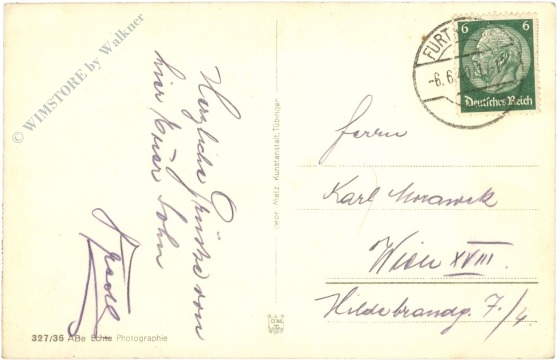 © WIMSTORE by Walkner
Herzliche Grüße von
hier Euer Sohn
327/36 ABe Echte Photographie
Gebr. Metz, Kunstanstalt, Tübingen
FURT
-6.6.40
6 6
Deutsches Reich
Herrn
Karl Morawek
Wien XVIII.
Hildebrandg. 7/4.